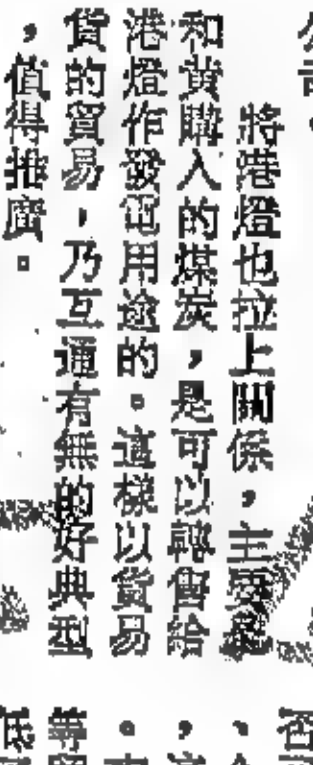 將港燈也拉上關係，主要是
和黃購入的煤炭，是可以轉售給
港燈作發電用途的。這樣以貨易
貨的貿易，乃互通有無的好典型
，值得推廣。